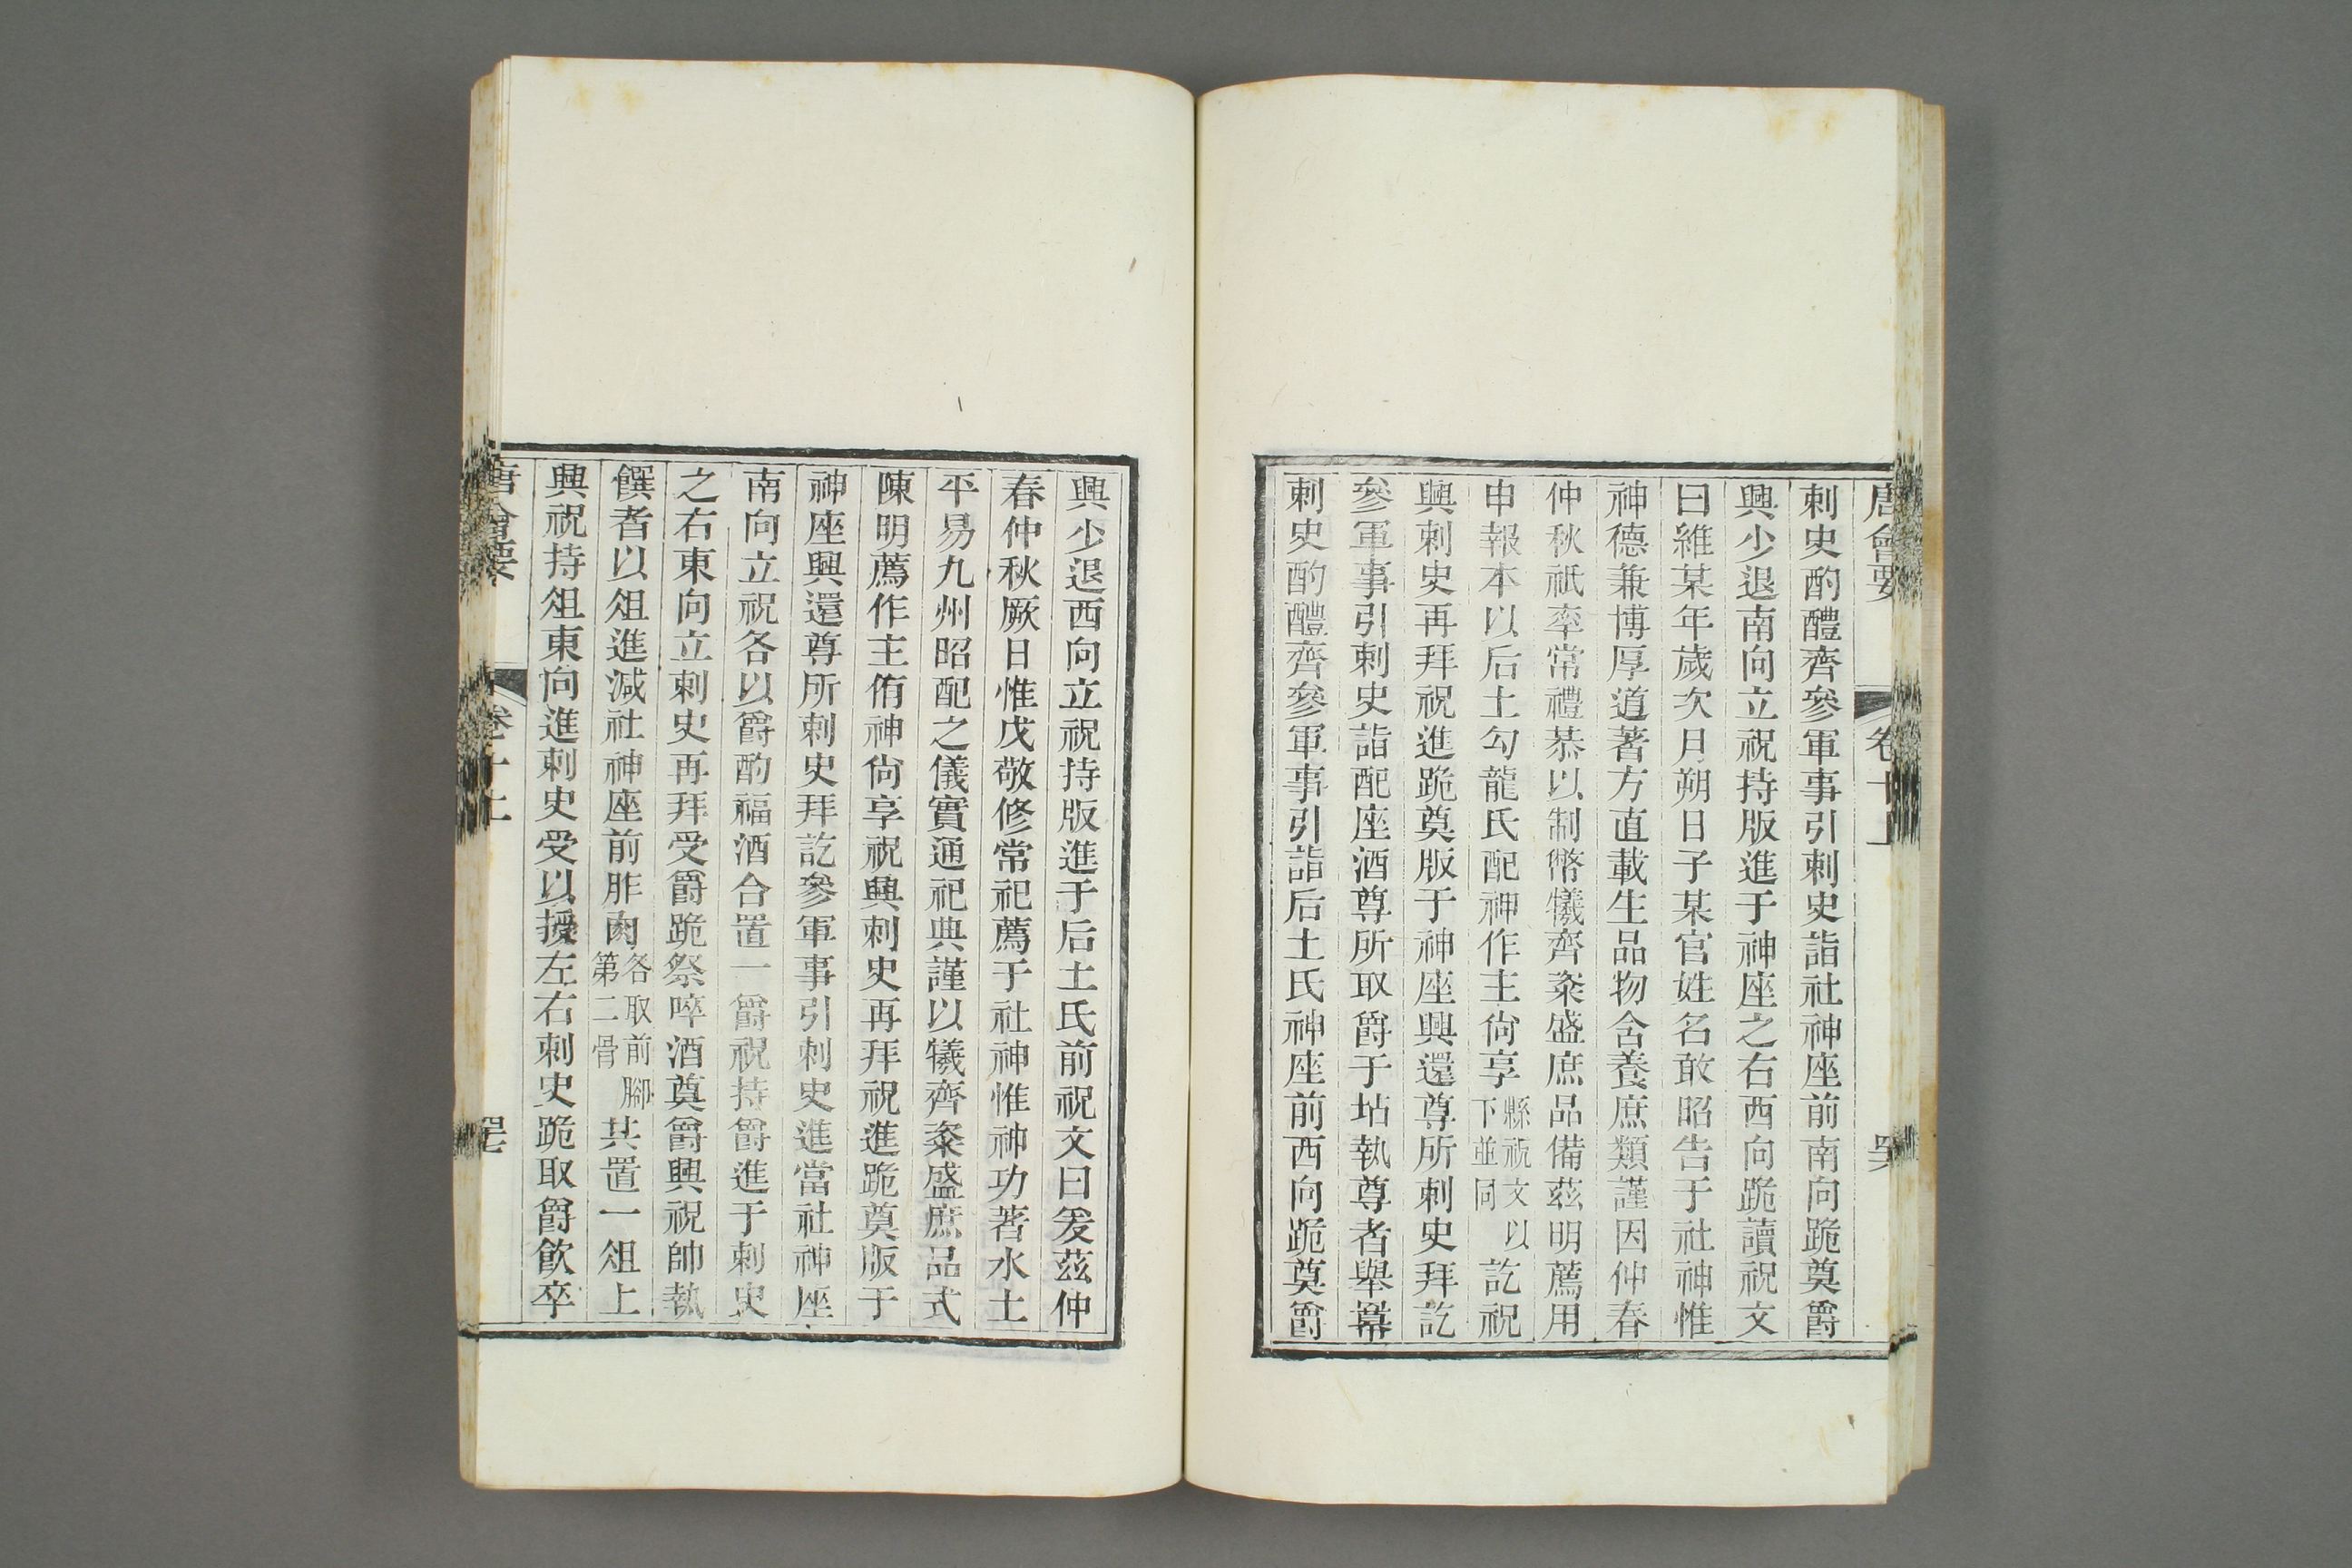 唐會要 卷十上
刺史酌醴齊參軍事引刺史詣社神座前南向跪奠爵
興少退南向立祝持版進于神座之右西向跪讀祝文
曰維某年歲次月朔日子某官姓名敢昭告于社神惟
神德兼博厚道著方直載生品物含養庶類謹因仲春
仲秋祇率常禮恭以制幣犧齊粢盛庶品備茲明薦用
申報本以后土勾龍氏配神作主尙享縣祝文以下並同訖祝
興刺史再拜祝進跪奠版于神座興還尊所刺史拜訖
參軍事引刺史詣配座酒尊所取爵于坫執尊者舉冪
刺史酌醴齊參軍事引詣后土氏神座前西向跪奠爵
興少退西向立祝持版進于后土氏前祝文曰爰茲仲
春仲秋厥日惟戊敬修常祀薦于社神惟神功著水土
平易九州昭配之儀實通祀典謹以犧齊粢盛庶品式
陳明薦作主侑神尙享祝興刺史再拜祝進跪奠版于
神座興還尊所刺史拜訖參軍事引刺史進當社神座
南向立祝各以爵酌福酒合置一爵祝持爵進于刺史
之右東向立刺史再拜受爵跪祭啐酒奠爵興祝帥執
饌者以俎進減社神座前胙肉各取前腳第二骨共置一俎上
興祝持俎東向進刺史受以授左右刺史跪取爵飮卒
唐會要 卷十上